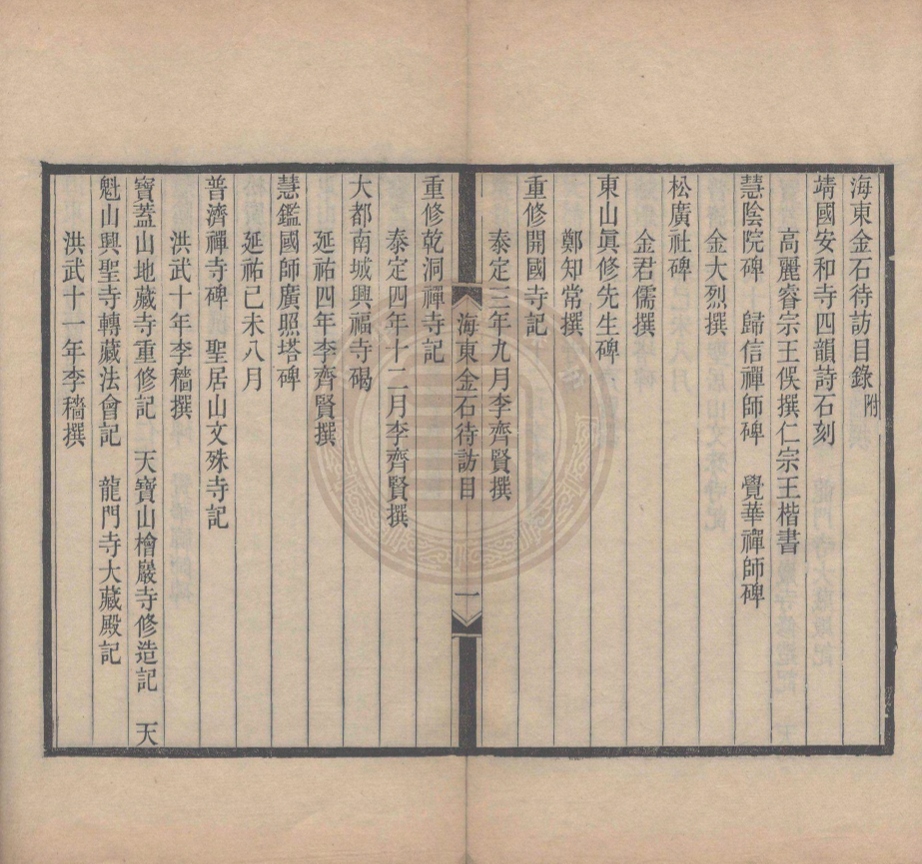 海東金石待訪目錄附
靖國安和寺四韻詩石刻
高麗睿宗王俁撰仁宗王楷書
慧陰院碑　歸信禪師碑　覺華禪師碑
金大烈撰
松廣社碑
金君儒撰
東山眞修先生碑
鄭知常撰
重修開國寺記
泰定三年九月李齊賢撰
海東金石待訪目　一
重修乾洞禪寺記
泰定四年十二月李齊賢撰
大都南城興福寺碣
延祐四年李齊賢撰
慧鑑國師廣照塔碑
延祐己未八月
普濟禪寺碑　聖居山文殊寺記
洪武十年李穡撰
寶蓋山地藏寺重修記　天寶山檜巖寺修造記　天
魁山興聖寺轉藏法會記　龍門寺大藏殿記
洪武十一年李穡撰